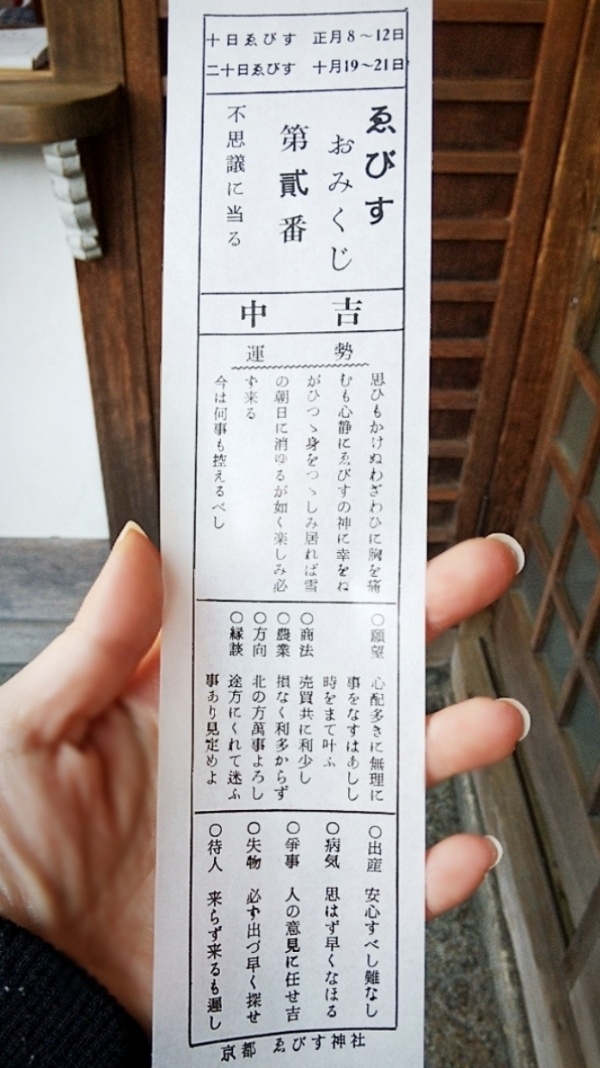 十日ゑびす 正月8~12日
二十日ゑびす 十月19~21日
ゑびす
おみくじ
第貮番
不思議に当る
中吉
運勢
思ひもかけぬわざわひに胸を痛
むも心静にゑびすの神に幸をね
がひつゝ身をつゝしみ居れば雪
の朝日に消ゆるが如く楽しみ必
ず来る
今は何事も控えるべし
○願望 心配多きに無理に
事をなすはあしし
時をまて叶ふ
○商法 売買共に利少し
○農業 損なく利多からず
○方向 北の方萬事よろし
○縁談 途方にくれて迷ふ
事あり見定めよ
○出産 安心すべし難なし
○病気 思はず早くなほる
○爭事 人の意見に任せ吉
○失物 必ず出づ早く探せ
○待人 来らず来るも遅し
京都 ゑびす神社